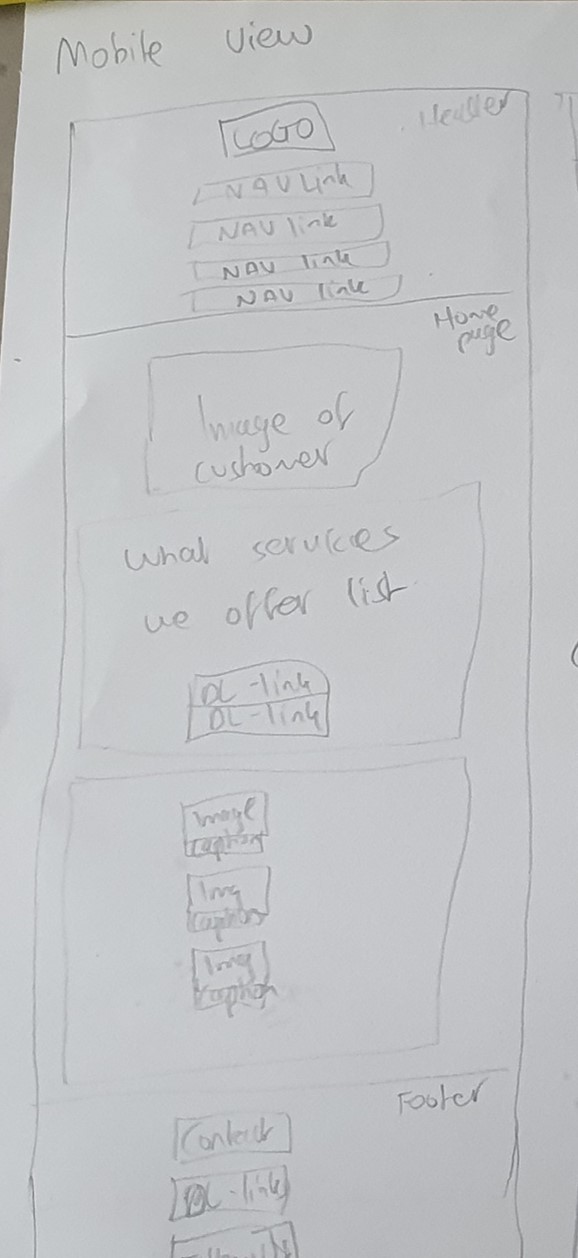 Mobile view
Header
LOGO
NAV Link
NAV link
NAV link
NAV link
Home
page
Image of
customer
what services
we offer list
DL-link
DL-link
Image
caption
Img
caption
Img
caption
Footer
Contact
DL-link